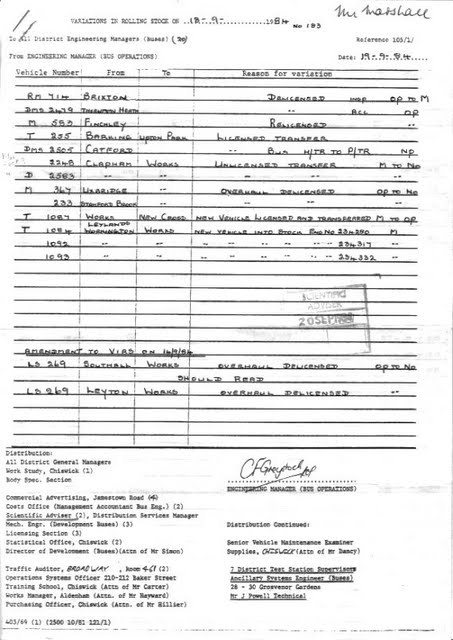 Mr Marshall
VARIATIONS IN ROLLING STOCK ON 18-9- 1984
No 183
To All District Engineering Managers (Buses) (20) Reference 103/1/
From ENGINEERING MANAGER (BUS OPERATIONS) Date: 19-9-84
Vehicle Number From To Reason for variation
RM 714 BRIXTON DELICENSED INSP OP TO M
DMS 2479 THORNTON HEATH -- ACC OP
M 593 FINCHLEY RELICENSED --
T 255 BARKING UPTON PARK LICENSED TRANSFER
DMS 2505 CATFORD -- BUS H/TR TO P/TR NP
2248 CLAPHAM WORKS UNLICENSED TRANSFER M TO NO
D 2583 -- -- -- -- --
M 367 UXBRIDGE OVERHAUL DELICENSED OP TO NO
233 STAMFORD BROOK -- -- --
T 1087 WORKS NEW CROSS NEW VEHICLE LICENSED AND TRANSFERRED M TO OP
T 1084 LEYLAND WORKINGTON WORKS NEW VEHICLE INTO STOCK ENG NO 234280 M
1092 -- -- -- -- -- 234317 --
1093 -- -- -- -- -- 234332 --
SCIENTIFIC
ADVISER
20 SEP
AMENDMENT TO VIRS ON 14/9/84
LS 269 SOUTHALL WORKS OVERHAUL DELICENSED OP TO NO
SHOULD READ
LS 269 LEYTON WORKS OVERHAUL DELICENSED --
Distribution:
All District General Managers
Work Study, Chiswick (1)
Body Spec. Section
ENGINEERING MANAGER (BUS OPERATIONS)
Commercial Advertising, Jamestown Road
Costs Office (Management Accountant Bus Eng.) (2)
Scientific Adviser (2), Distribution Services Manager
Mech. Engr. (Development Buses) (3)
Licensing Section (3)
Statistical Office, Chiswick (2)
Director of Development (Buses)(attn of Mr Simon)
Distribution Continued:
Senior Vehicle Maintenance Examiner
Supplies, CHISWICK (Attn of Mr Dancy)
Traffic Auditor, BROADWAY, ROOM 461 (2)
Operations Systems Officer 210-212 Baker Street
Training School, Chiswick (Attn of Mr Carter)
Works Manager, Aldenham (Attn. of Mr Hayward)
Purchasing Officer, Chiswick (Attn of Mr Hillier)
7 District Test Station Supervisors
Ancillary Systems Engineer (Buses)
28 - 50 Grosvenor Gardens
Mr J Powell Technical
405/69 (1) (2500 10/81 121/1)